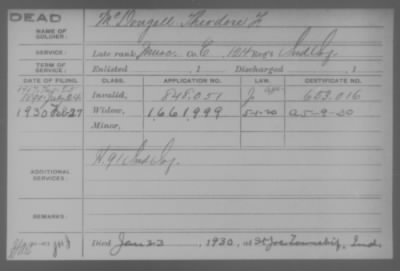 DEAD
NAME OF SOLDIER: McDougall, Theodore F.
SERVICE: Late rank Musc. Co. C, 104 Reg't Ind Inf
TERM OF SERVICE: Enlisted , 1 Discharged , 1
DATE OF FILING. CLASS. APPLICATION NO. LAW. CERTIFICATE NO.
1890 July Invalid, 848.051 J 603.016
1930 Feb 27 Widow, 1,661,999 5-1-20 a5-9-30
Minor,
ADDITIONAL SERVICES: H 91 Ind Inf.
REMARKS:
Died Jan 22, 1930, at St Joe Township, Ind.